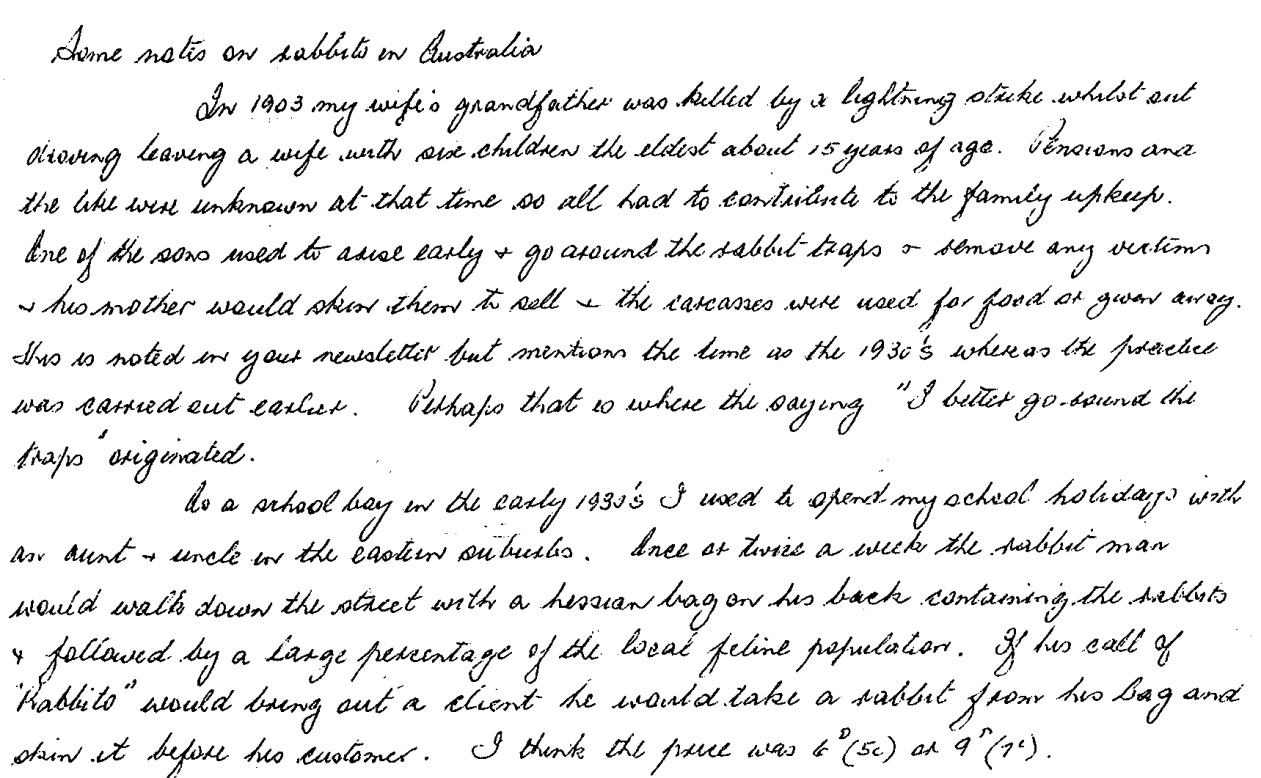 Some notes on rabbits in Australia
In 1903 my wife's grandfather was killed by a lightning strike whilst out
droving leaving a wife with six children the eldest about 15 years of age. Pensions and
the like were unknown at that time so all had to contribute to the family upkeep.
One of the sons used to arise early + go around the rabbit traps + remove any victims
+ his mother would skin them to sell + the carcasses were used for food or given away.
This is noted in your newsletter but mentions the time as the 1930's whereas the practice
was carried out earlier. Perhaps that is where the saying "I better go round the
traps" originated.
As a school boy in the early 1930's I used to spend my school holidays with
an aunt + uncle in the eastern suburbs. Once or twice a week the rabbit man
would walk down the street with a hessian bag on his back containing the rabbits
+ followed by a large percentage of the local feline population. If his call of
"Rabbito" would bring out a client he would take a rabbit from his bag and
skin it before his customer. I think the price was 6D (5c) or 9D (7c).